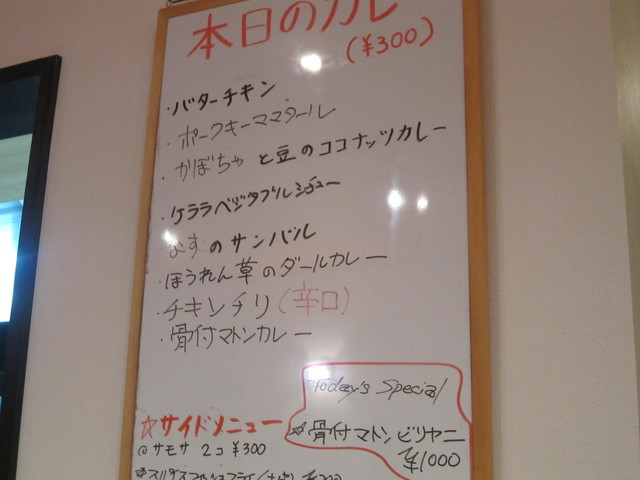 本日のカレ
(¥300)
・バターチキン
・ポークキーママタール
・かぼちゃと豆のココナッツカレー
・ケララベジタブルシチュー
・なすのサンバル
・ほうれん草のダールカレー
・チキンチリ(辛口)
・骨付マトンカレー
Today's Special
☆骨付マトンビリヤニ
¥1000
☆サイドメニュー
@サモサ 2コ ¥300